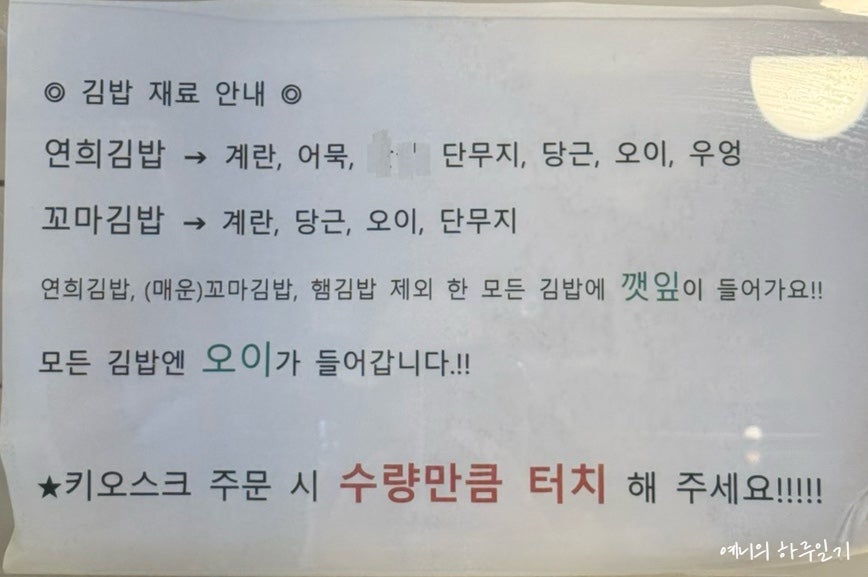 ◎ 김밥 재료 안내 ◎
연희김밥 → 계란, 어묵, 단무지, 당근, 오이, 우엉
꼬마김밥 → 계란, 당근, 오이, 단무지
연희김밥, (매운)꼬마김밥, 햄김밥 제외 한 모든 김밥에 깻잎이 들어가요!!
모든 김밥엔 오이가 들어갑니다.!!
★키오스크 주문 시 수량만큼 터치 해 주세요!!!!!
예니의 하루일기